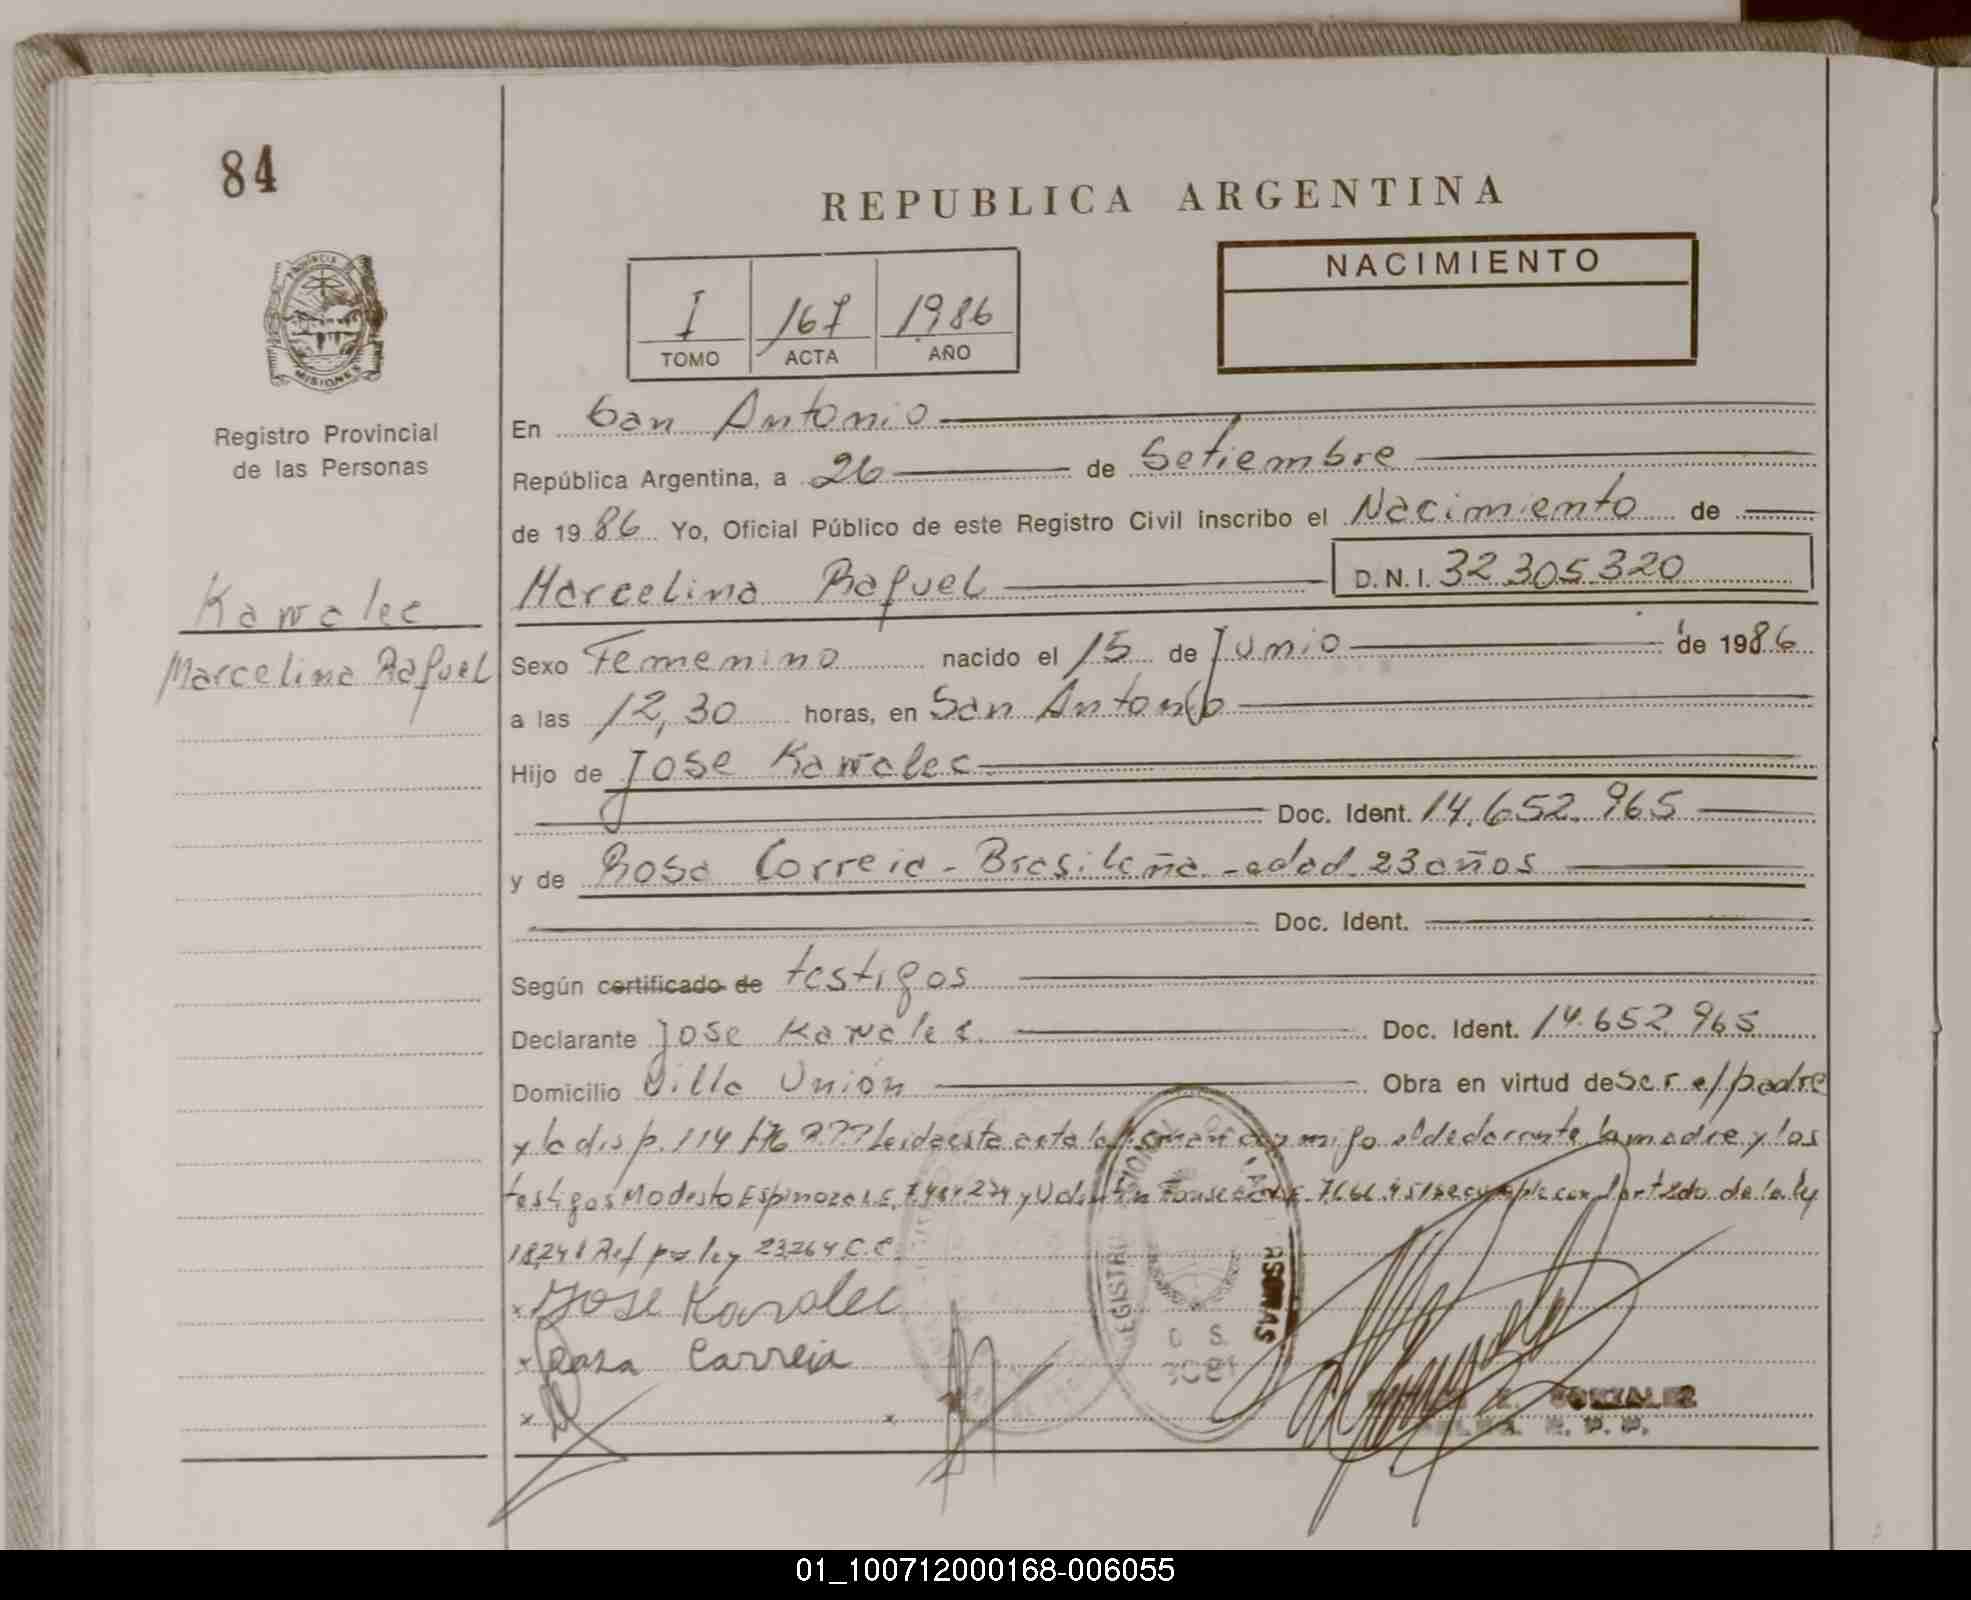 84
REPUBLICA ARGENTINA
NACIMIENTO
I 167 1986
TOMO ACTA AÑO
PROVINCIA DE MISIONES
Registro Provincial
de las Personas
Kawalec
Marcelina Rafuel
En San Antonio
República Argentina, a 26 de Setiembre
de 1986 Yo, Oficial Público de este Registro Civil inscribo el Nacimiento de
Marcelina Rafuel D.N.I. 32.305.320
Sexo Femenino nacido el 15 de Junio de 1986
a las 12,30 horas, en San Antonio
Hijo de Jose Kawalec
Doc. Ident. 14.652.965
y de Rosa Correia - Brasileña - edad 23 años
Doc. Ident.
Según certificado de testigos
Declarante Jose Kawalec Doc. Ident. 14.652.965
Domicilio Villa Unión Obra en virtud de ser el padre
y la disp. 114 Leida esta acta la firman conmigo el declarante, la madre y los
testigos Modesto Espinoza L.E. 7.484.274 y Valentin 7.666.451 se cumple con el art 2do de la ley
18,248 Ref por ley 23264 C.C.
x Jose Kavalec
x Rosa Carreia
x x
GONZALEZ
01_100712000168-006055